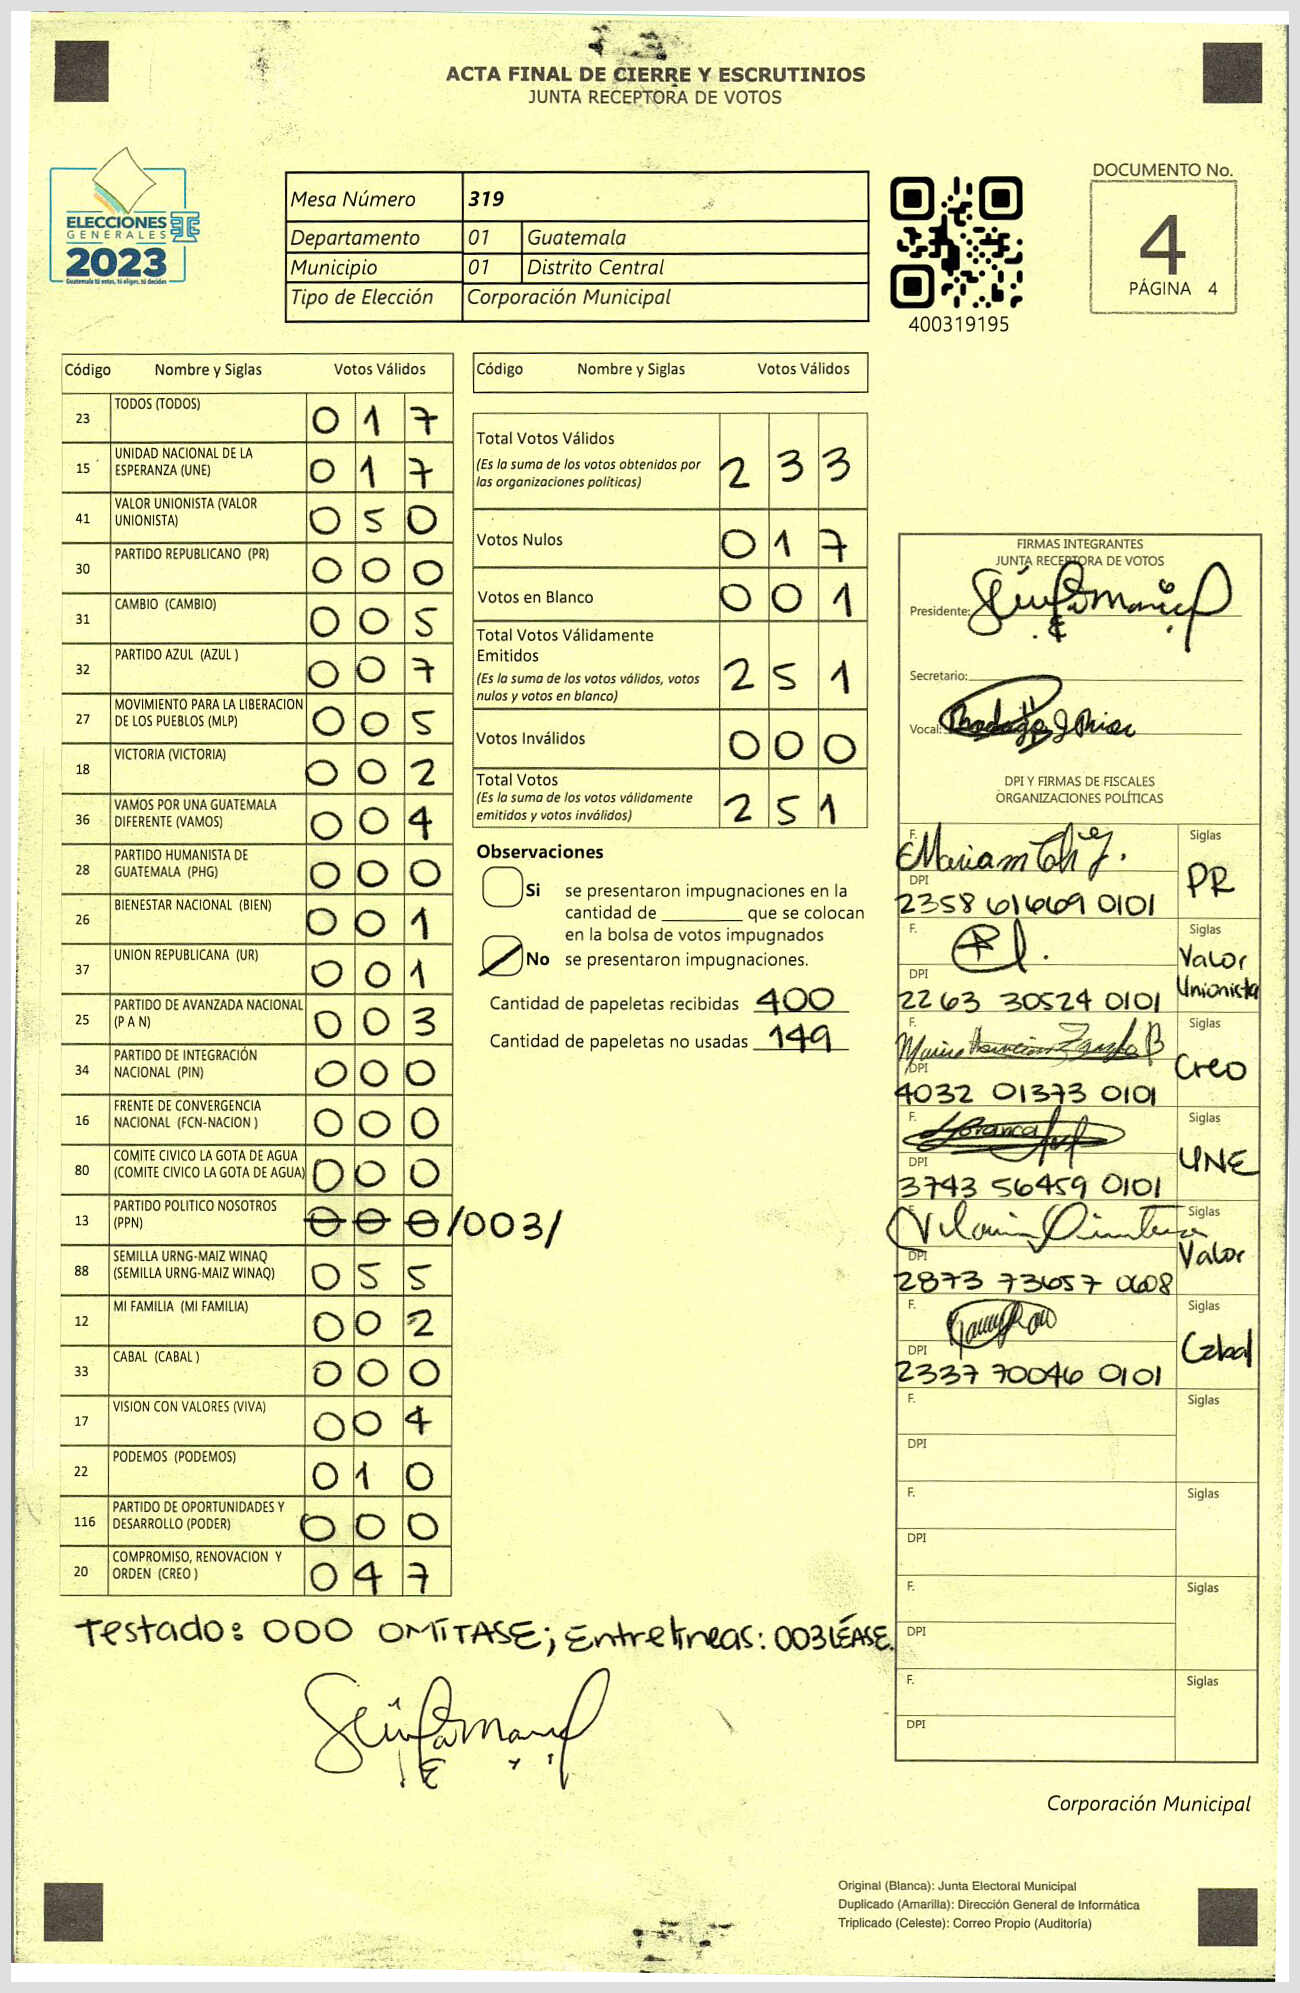 ACTA FINAL DE CIERRE Y ESCRUTINIOS
JUNTA RECEPTORA DE VOTOS
ELECCIONES
GENERALES
2023
Guatemala tú votas, tú eliges, tú decides
Mesa Número 319
Departamento 01 Guatemala
Municipio 01 Distrito Central
Tipo de Elección Corporación Municipal
400319195
DOCUMENTO No.
4
PÁGINA 4
Código Nombre y Siglas Votos Válidos
23 TODOS (TODOS) 0 1 7
15 UNIDAD NACIONAL DE LA
ESPERANZA (UNE) 0 1 7
41 VALOR UNIONISTA (VALOR
UNIONISTA) 0 5 0
30 PARTIDO REPUBLICANO (PR) 0 0 0
31 CAMBIO (CAMBIO) 0 0 5
32 PARTIDO AZUL (AZUL ) 0 0 7
27 MOVIMIENTO PARA LA LIBERACION
DE LOS PUEBLOS (MLP) 0 0 5
18 VICTORIA (VICTORIA) 0 0 2
36 VAMOS POR UNA GUATEMALA
DIFERENTE (VAMOS) 0 0 4
28 PARTIDO HUMANISTA DE
GUATEMALA (PHG) 0 0 0
26 BIENESTAR NACIONAL (BIEN) 0 0 1
37 UNION REPUBLICANA (UR) 0 0 1
25 PARTIDO DE AVANZADA NACIONAL
(P A N) 0 0 3
34 PARTIDO DE INTEGRACIÓN
NACIONAL (PIN) 0 0 0
16 FRENTE DE CONVERGENCIA
NACIONAL (FCN-NACION ) 0 0 0
80 COMITE CIVICO LA GOTA DE AGUA
(COMITE CIVICO LA GOTA DE AGUA) 0 0 0
13 PARTIDO POLITICO NOSOTROS
(PPN) 0 0 0 /003/
88 SEMILLA URNG-MAIZ WINAQ
(SEMILLA URNG-MAIZ WINAQ) 0 5 5
12 MI FAMILIA (MI FAMILIA) 0 0 2
33 CABAL (CABAL ) 0 0 0
17 VISION CON VALORES (VIVA) 0 0 4
22 PODEMOS (PODEMOS) 0 1 0
116 PARTIDO DE OPORTUNIDADES Y
DESARROLLO (PODER) 0 0 0
20 COMPROMISO, RENOVACION Y
ORDEN (CREO ) 0 4 7
Testado: 000 OMÍTASE; Entrelineas: 003 LÉASE.
Código Nombre y Siglas Votos Válidos
Total Votos Válidos 2 3 3
(Es la suma de los votos obtenidos por
las organizaciones políticas)
Votos Nulos 0 1 7
Votos en Blanco 0 0 1
Total Votos Válidamente
Emitidos 2 5 1
(Es la suma de los votos válidos, votos
nulos y votos en blanco)
Votos Inválidos 0 0 0
Total Votos 2 5 1
(Es la suma de los votos válidamente
emitidos y votos inválidos)
Observaciones
Si se presentaron impugnaciones en la
cantidad de ________ que se colocan
en la bolsa de votos impugnados
No se presentaron impugnaciones.
Cantidad de papeletas recibidas 400
Cantidad de papeletas no usadas 149
FIRMAS INTEGRANTES
JUNTA RECEPTORA DE VOTOS
Presidente:
Secretario:
Vocal:
DPI Y FIRMAS DE FISCALES
ORGANIZACIONES POLÍTICAS
F. Siglas
PR
DPI
2358 61669 0101
F. Siglas
Valor
Unionista
DPI
2263 30524 0101
F. Siglas
Creo
DPI
4032 01373 0101
F. Siglas
UNE
DPI
3743 56459 0101
F. Siglas
Valor
DPI
2873 73657 0608
F. Siglas
Cabal
DPI
2337 70046 0101
F. Siglas
DPI
F. Siglas
DPI
F. Siglas
DPI
F. Siglas
DPI
Corporación Municipal
Original (Blanca): Junta Electoral Municipal
Duplicado (Amarilla): Dirección General de Informática
Triplicado (Celeste): Correo Propio (Auditoría)